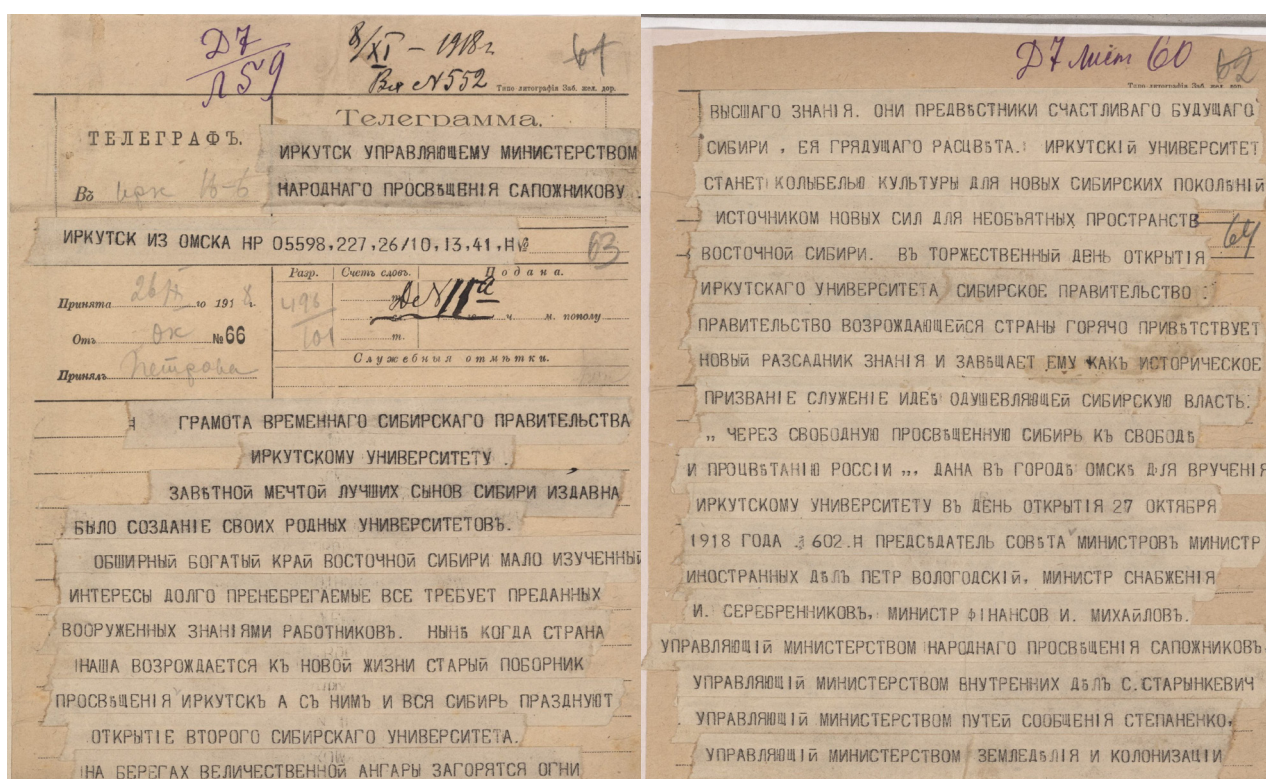 Д7
Л 59
8/XI – 1918 г.
Вх № 552
61
Типо-литографія Заб. жел. дор.
ТЕЛЕГРАФЪ.
Телеграмма.
Въ
ИРКУТСК УПРАВЛЯЮЩЕМУ МИНИСТЕРСТВОМ
НАРОДНАГО ПРОСВѢЩЕНІЯ САПОЖНИКОВУ
ИРКУТСК ИЗ ОМСКА НР 05598,227,26/10,13,41,Н№
63
Разр.
Счетъ словъ.
Подана.
Принята 26/X го 1918 г.
496
101
ч. м. пополу
Отъ ок № 66
т.
Служебныя отмѣтки.
Принялъ Петрова
ГРАМОТА ВРЕМЕННАГО СИБИРСКАГО ПРАВИТЕЛЬСТВА
ИРКУТСКОМУ УНИВЕРСИТЕТУ .
ЗАВѢТНОЙ МЕЧТОЙ ЛУЧШИХ СЫНОВ СИБИРИ ИЗДАВНА
БЫЛО СОЗДАНІЕ СВОИХ РОДНЫХ УНИВЕРСИТЕТОВЪ.
ОБШИРНЫЙ БОГАТЫЙ КРАЙ ВОСТОЧНОЙ СИБИРИ МАЛО ИЗУЧЕННЫЙ
ИНТЕРЕСЫ ДОЛГО ПРЕНЕБРЕГАЕМЫЕ ВСЕ ТРЕБУЕТ ПРЕДАННЫХ
ВООРУЖЕННЫХ ЗНАНІЯМИ РАБОТНИКОВЪ. НЫНѢ КОГДА СТРАНА
НАША ВОЗРОЖДАЕТСЯ КЪ НОВОЙ ЖИЗНИ СТАРЫЙ ПОБОРНИК
ПРОСВѢЩЕНІЯ ИРКУТСКЪ А СЪ НИМЪ И ВСЯ СИБИРЬ ПРАЗДНУЮТ
ОТКРЫТІЕ ВТОРОГО СИБИРСКАГО УНИВЕРСИТЕТА.
НА БЕРЕГАХ ВЕЛИЧЕСТВЕННОЙ АНГАРЫ ЗАГОРЯТСЯ ОГНИ
Д7 Лист 60
62
Типо-литографія Заб. жел. дор.
ВЫСШАГО ЗНАНІЯ. ОНИ ПРЕДВѢСТНИКИ СЧАСТЛИВАГО БУДУЩАГО
СИБИРИ , ЕЯ ГРЯДУЩАГО РАСЦВѢТА. ИРКУТСКІЙ УНИВЕРСИТЕТ
СТАНЕТ КОЛЫБЕЛЬЮ КУЛЬТУРЫ ДЛЯ НОВЫХ СИБИРСКИХ ПОКОЛѢНІЙ
ИСТОЧНИКОМ НОВЫХ СИЛ ДЛЯ НЕОБЪЯТНЫХ ПРОСТРАНСТВ
64
ВОСТОЧНОЙ СИБИРИ. ВЪ ТОРЖЕСТВЕННЫЙ ДЕНЬ ОТКРЫТІЯ
ИРКУТСКАГО УНИВЕРСИТЕТА СИБИРСКОЕ ПРАВИТЕЛЬСТВО .
ПРАВИТЕЛЬСТВО ВОЗРОЖДАЮЩЕЙСЯ СТРАНЫ ГОРЯЧО ПРИВѢТСТВУЕТ
НОВЫЙ РАЗСАДНИК ЗНАНІЯ И ЗАВѢЩАЕТ ЕМУ КАКЪ ИСТОРИЧЕСКОЕ
ПРИЗВАНІЕ СЛУЖЕНІЕ ИДЕѢ ОДУШЕВЛЯЮЩЕЙ СИБИРСКУЮ ВЛАСТЬ.
„ ЧЕРЕЗ СВОБОДНУЮ ПРОСВѢЩЕННУЮ СИБИРЬ КЪ СВОБОДѢ
И ПРОЦВѢТАНІЮ РОССІИ „. ДАНА ВЪ ГОРОДѢ ОМСКѢ ДЛЯ ВРУЧЕНІЯ
ИРКУТСКОМУ УНИВЕРСИТЕТУ ВЪ ДЕНЬ ОТКРЫТІЯ 27 ОКТЯБРЯ
1918 ГОДА 602.Н ПРЕДСѢДАТЕЛЬ СОВѢТА МИНИСТРОВЪ МИНИСТР
ИНОСТРАННЫХ ДѢЛЪ ПЕТР ВОЛОГОДСКІЙ, МИНИСТР СНАБЖЕНІЯ
И. СЕРЕБРЕННИКОВЪ, МИНИСТР ФІНАНСОВ И. МИХАЙЛОВЪ.
УПРАВЛЯЮЩІЙ МИНИСТЕРСТВОМ НАРОДНАГО ПРОСВѢЩЕНІЯ САПОЖНИКОВЪ
УПРАВЛЯЮЩІЙ МИНИСТЕРСТВОМ ВНУТРЕННИХ ДѢЛЪ С.СТАРЫНКЕВИЧ
УПРАВЛЯЮЩІЙ МИНИСТЕРСТВОМ ПУТЕЙ СООБЩЕНІЯ СТЕПАНЕНКО,
УПРАВЛЯЮЩІЙ МИНИСТЕРСТВОМ ЗЕМЛЕДѢЛІЯ И КОЛОНИЗАЦІИ